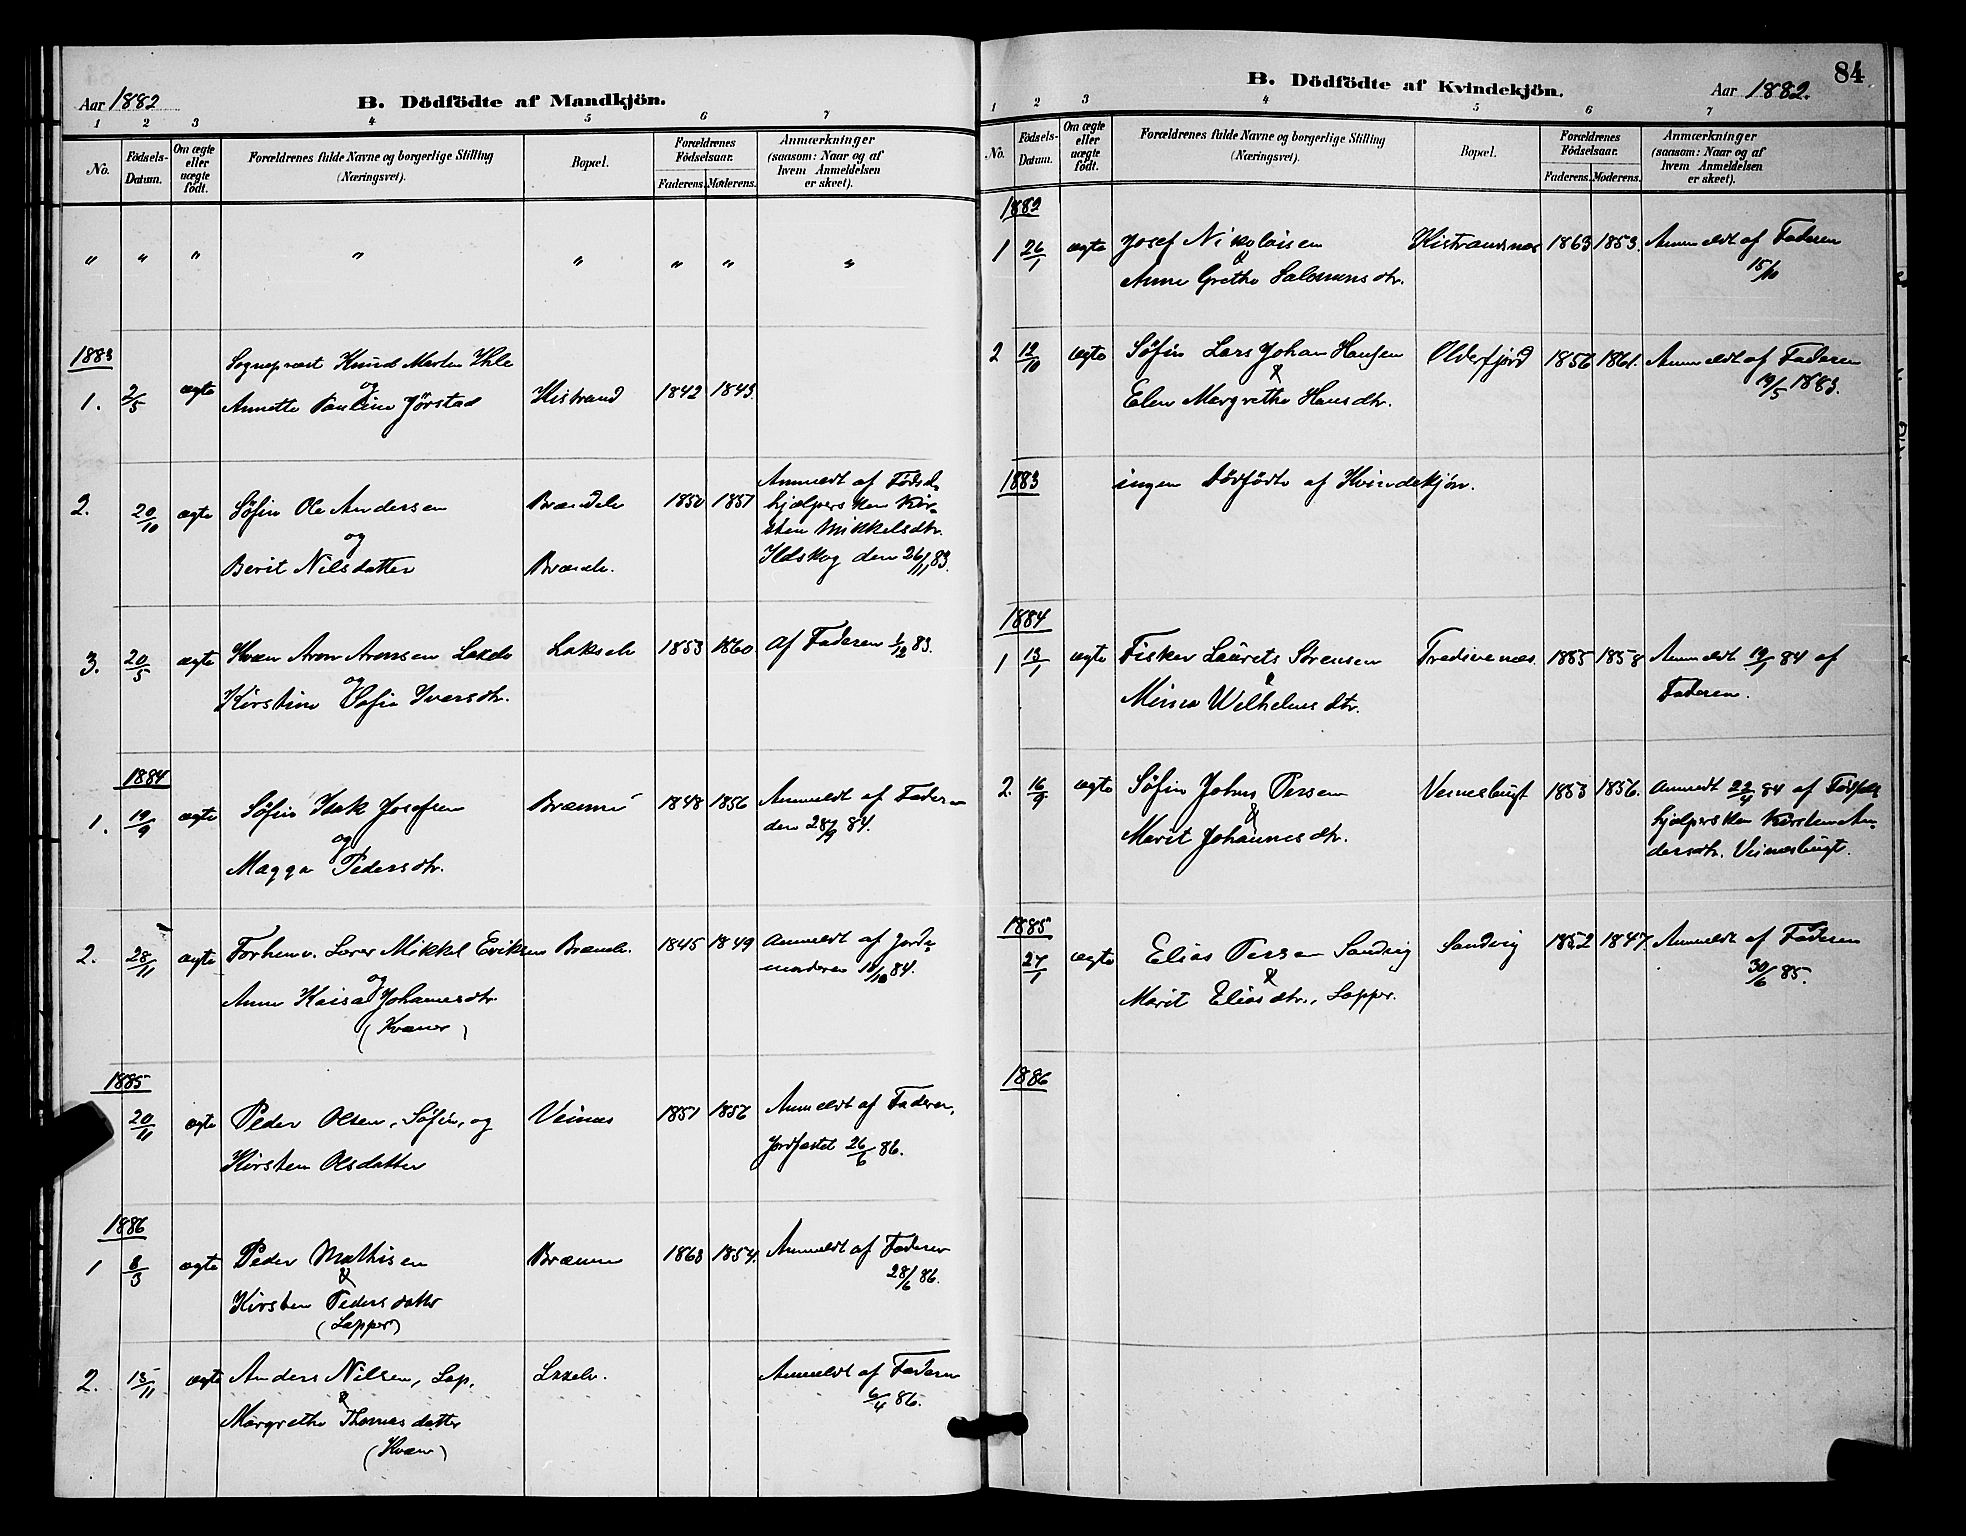 Aar 1882
B. Dödfödte af Mandkjön.
1 2 3 4 5 6 7
No.
Födsels-Datum.
Om ægte eller uægte födt.
Forældrenes fulde Navne og borgerlige Stilling (Næringsvei).
Bopæl.
Forældrenes Födselsaar.
Faderens. Moderens.
Anmærkninger (saasom: Naar og af hvem Anmeldelsen er skeet).
" " " " " " " "
1883
1. 2/5 ægte Sognepræst Knud Morten Ihle
og
Annette Pauline Jörstad Kistrand 1842 1843.
2. 20/10 ægte Söfin Ole Andersen Brændelv 1850 1857 Anmeldt af Födsels
hjælpersken Kir-
sten Mikkelsdtr.
og
Berit Nilsdatter Brændelv. Ildskog den 26/11 83.
3. 20/5 ægte Kvæn Aron Aronsen Lakselv Lakselv 1853 1860 af Faderen 1/12 83.
og
Kirstine Sofie Iversdtr.
1884
1. 19/9 ægte Söfin Isak Josefsen Brænne 1848 1856 Anmeldt af Faderen
den 28/9 84.
og
Magga Pedersdtr.
2. 28/11 ægte Forhenv. Lærer Mikkel Eriksen Brænelv. 1845 1849 anmeldt af Jorde-
moderen 84.
og
Anna Kaisa Johannesdtr.
(Kvæner)
1885
20/11 ægte Peder Olsen, Söfin, og Veines 1851 1856 Anmeldt af Faderen,
Jordfæstet 26/6 86.
Kirsten Olsdatter
1886
1 8/3 ægte Peder Mathisen Brænne 1863 1854. Anmeldt af Faderen
28/6 86.
&
Kirsten Pedersdatter
(Lapper)
2. 15/11 ægte Anders Nilsen, Lap, Lakselv. Anmeldt af Faderen
6/4 86.
&
Margrethe Thomasdatter
(Kvæn)
84
B. Dödfödte af Kvindekjön.
Aar 1882.
1 2 3 4 5 6 7
No.
Födsels-Datum.
Om ægte eller uægte födt.
Forældrenes fulde Navne og borgerlige Stilling (Næringsvei).
Bopæl.
Forældrenes Födselsaar.
Faderens. Moderens.
Anmærkninger (saasom: Naar og af hvem Anmeldelsen er skeet).
1882
1 26/1 ægte Josef Nikolaisen Kistrandsnæs 1863 1853. Anmeldt af Faderen
15/10
&
Anne Grethe Salomonsdtr.
2 12/10 ægte Söfin Lars Johan Hansen Olderfjord 1856 1861. Anmeldt af Faderen
19/5 1883.
&
Elen Margrethe Hansdtr.
1883 ingen Dödfödte af Kvindekjön.
1884
1 13/1 ægte Fisker Laurits Sörensen Tredivenæs. 1855 1858 Anmeldt 19/1 84 af
Faderen.
&
Minna Wilhelmsdtr.
2. 16/9 ægte Söfin Johns Persen Veinesbugt 1853 1856. anmeldt 22/4 84 af Födsels
hjælpersken Kirsten An-
dersdtr. Veinesbugt.
&
Marit Johannesdtr.
1885
27/1 ægte Elias Persen Sandvig Sandvig 1852 1847. Anmeldt af Faderen
30/6 85.
&
Marit Eliasdtr., Lapper.
1886